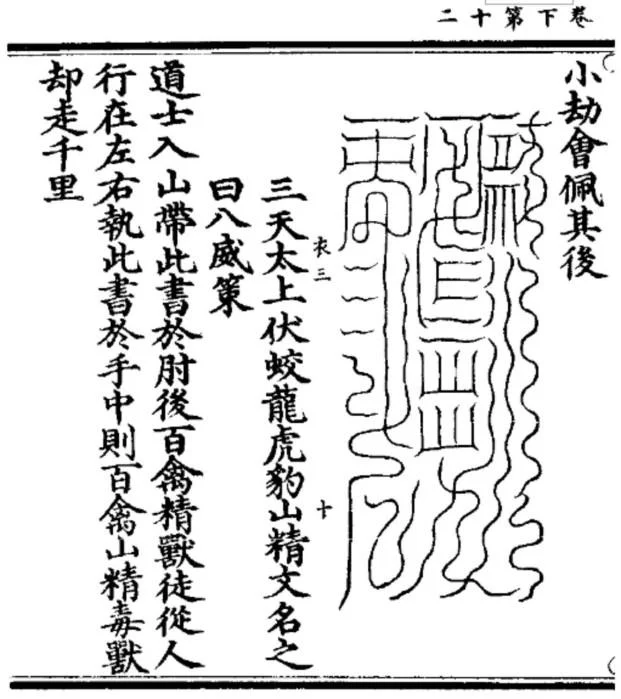 卷下第十二
小劫會佩其後
三天太上伏蛟龍虎豹山精文名之
曰八威策
衣三
十
道士入山帶此書於肘後百禽精獸徒從人
行在左右執此書於手中則百禽山精毒獸
却走千里